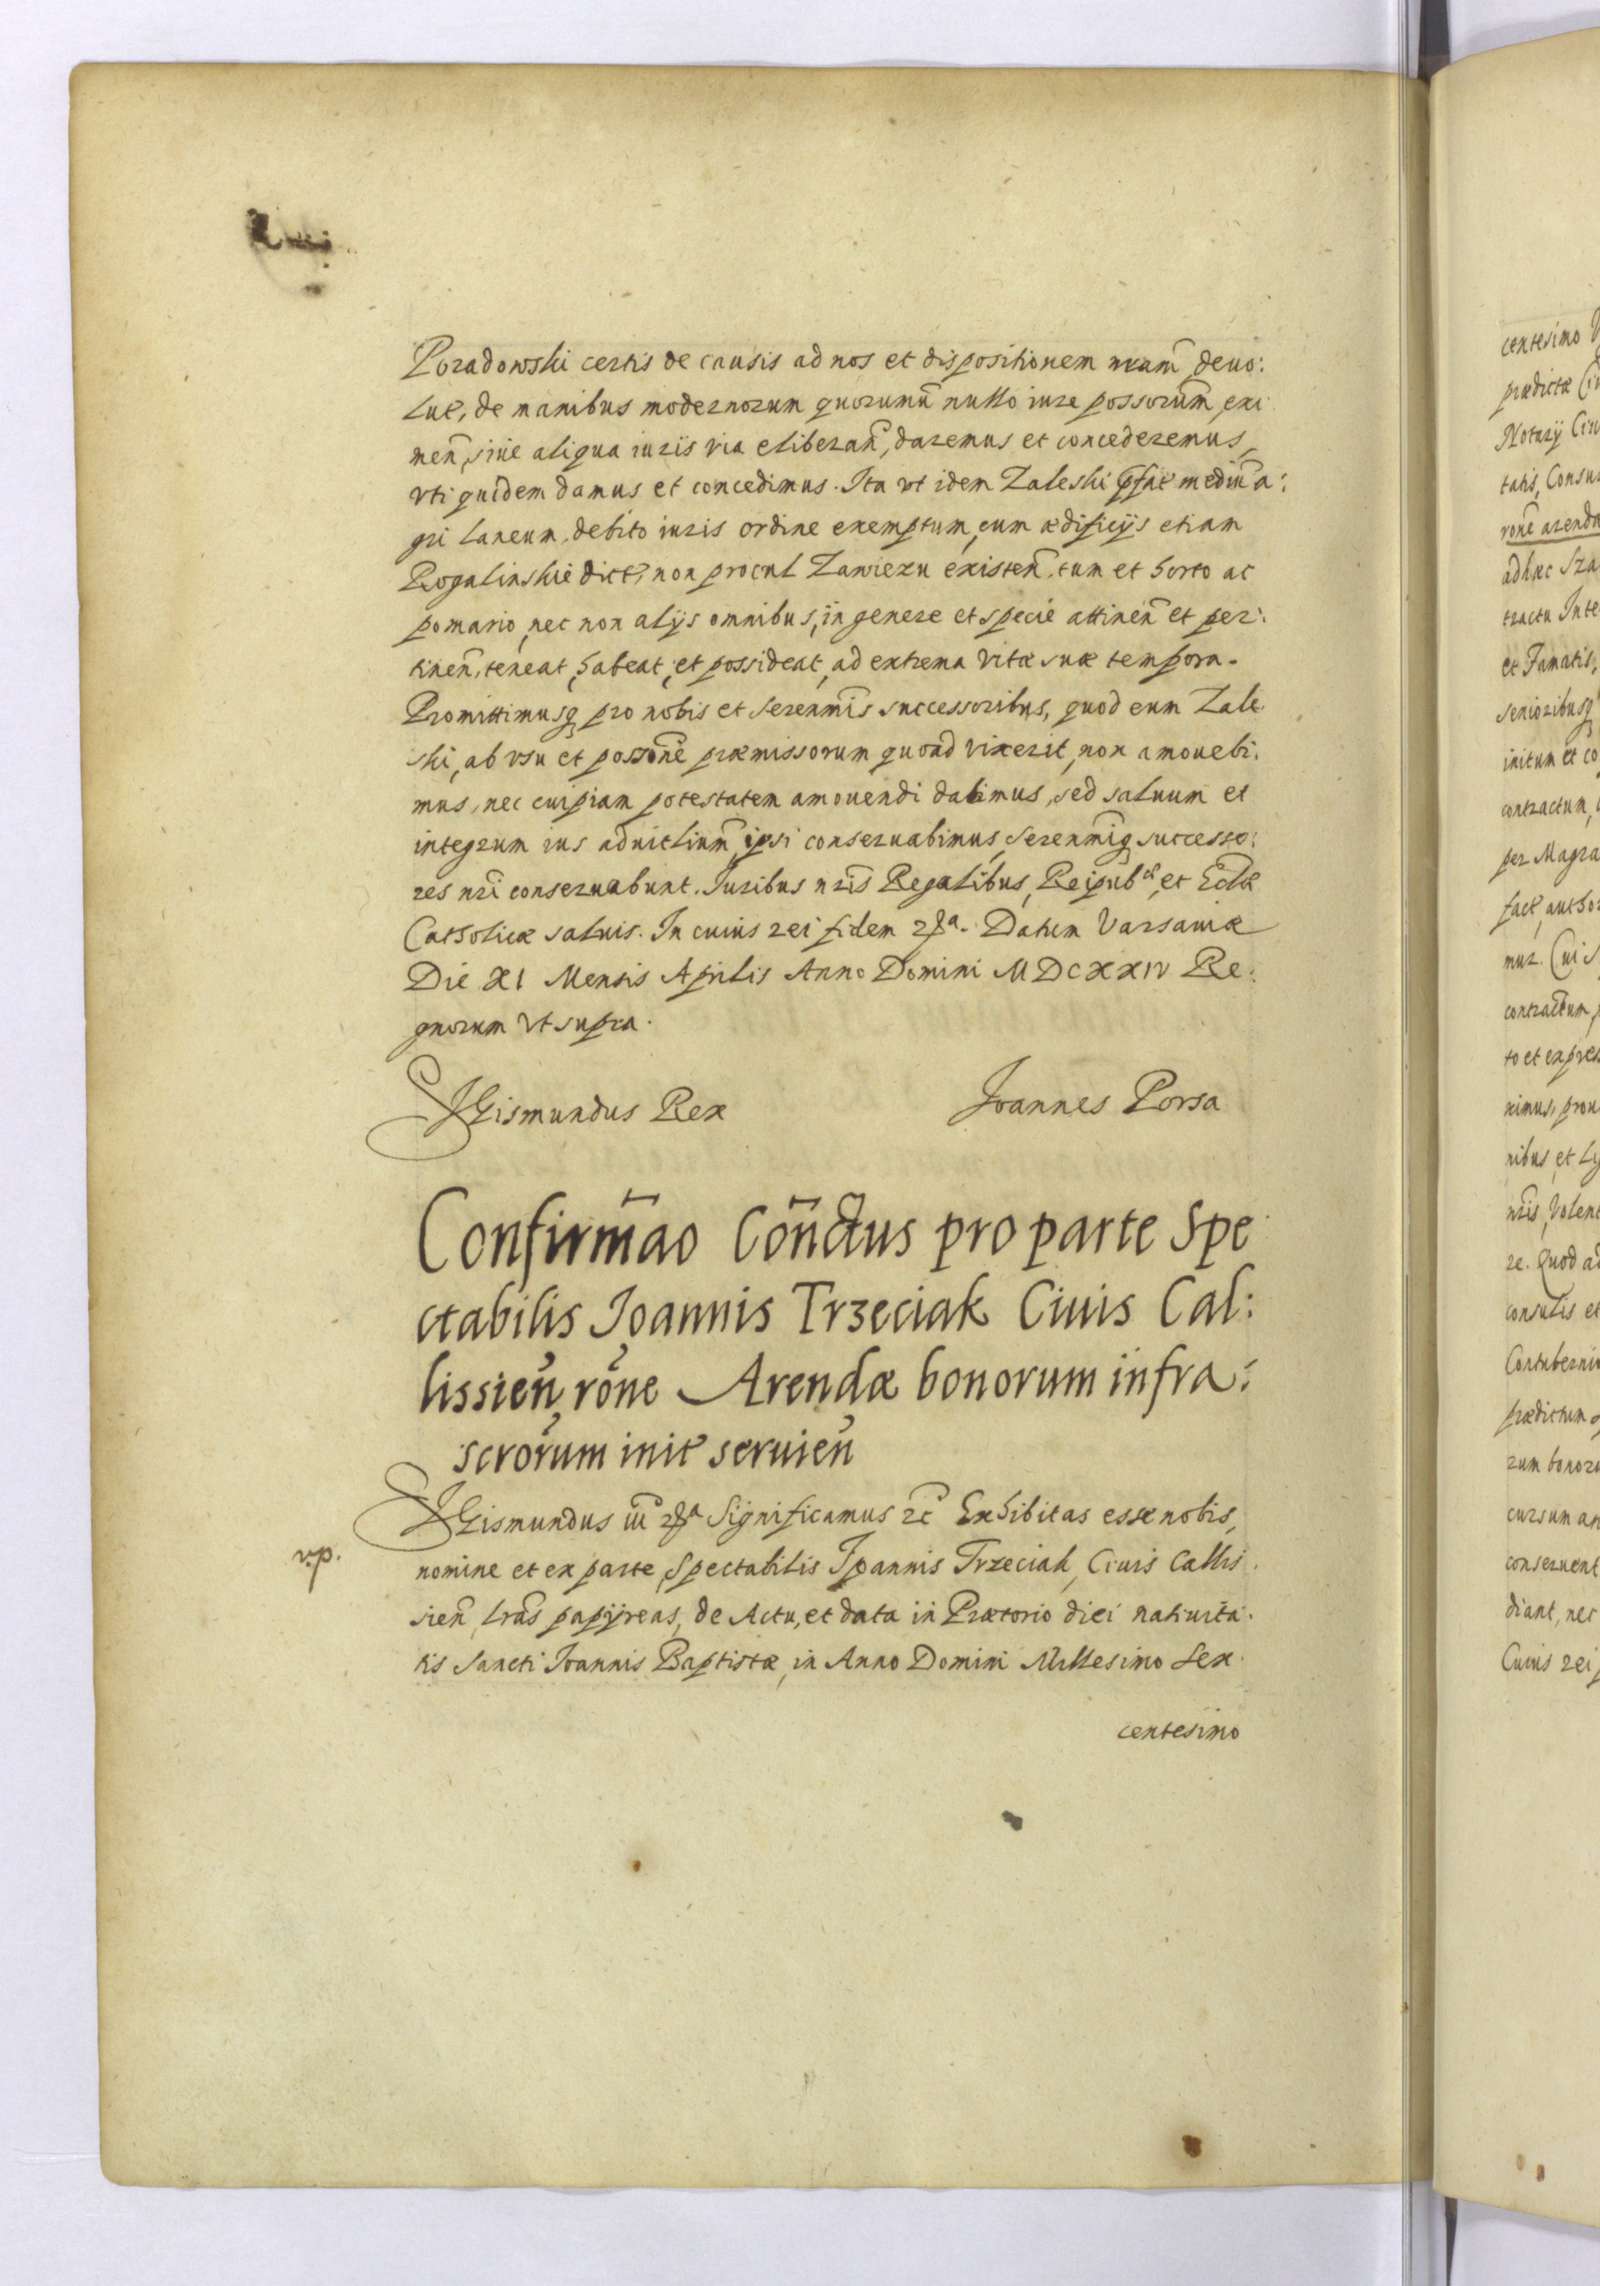 Poradowski certis de causis ad nos et dispositionem nram̃ deuo:
lut, de manibus modernorum quorumũ nullo iure possorum̃ exi
men̄, siue aliqua iuris via eliberan̄, daremus et concederemus,
vti quidem damus et concedimus. Ita vt idem Zaleski p̃fat medium̃ a:
gri laneum, debito iuris ordine exemptum, cum ædificijs etiam
Rogalinskie dict, non procul Zawiexu existen̄, tum et horto ac
pomario, nec non alijs omnibus, in genere et specie attinen̄ et per:
tinen̄, teneat, habeat, et possideat, ad extrema vitæ suæ tempora.
Promittimusq pro nobis et serenm̃is successoribus, quod eum Zale
ski, ab vsu et possone̅ præmissorum quoad vixerit, non amouebi:
mus, nec cuipiam potestatem amouendi dabimus, sed saluum et
integrum ius aduitlium̃ ipsi conseruabimus, serenm̃iq successo:
res nr̃i conseruabunt. Iuribus nr̃is Regalibus, Reipub⁠cæ, et Eccl̃æ
Catholicæ saluis. In cuius rei fidem &a. Datum Varsauiæ
Die XI Mensis Aprilis Anno Domini MDCXXIV Re:
gnorum vt supra.
Sigismundus Rex Joannes Porsa
Confirmão Cõnctus pro parte Spe
ctabilis Joannis Trzeciak Ciuis Cal:
lissien̄, rõne Arendæ bonorum infra:
scrõrum init seruien̄
Sigismundus iii &a Significamus &c Exhibitas esse nobis,
v.p.
nomine et ex parte, Spectabilis Joannis Trzeciak, Ciuis Callis
sien̄, lr̃as papyreas, de Actu, et data in Prætorio diei natiuita:
tis Sancti Joannis Baptistæ, in Anno Domini Millesimo Sex
centesimo
centesimo
prædictæ
Notarij
tatis, Consu
rõne arenda
adhæc Sza
tractu Inte
et Famatis,
senioribusq
initum et co
contractum,
per Magra
fact, autho
mur. Cui
contractum,
to et expres
nimus, prou
nibus, et
nr̃is, Volen
re. Quod ad
consulis et
Contuberni
prædictum
rum bonor
cursum an
conseruent
diant, nec
Cuius rei